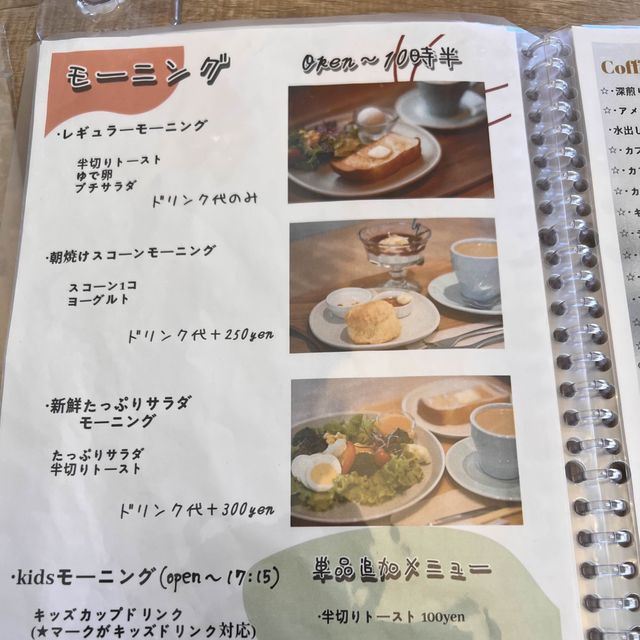 モーニング
Open～10時半
・レギュラーモーニング
半切りトースト
ゆで卵
プチサラダ
ドリンク代のみ
・朝焼けスコーンモーニング
スコーン1コ
ヨーグルト
ドリンク代＋250yen
・新鮮たっぷりサラダ
モーニング
たっぷりサラダ
半切りトースト
ドリンク代＋300yen
・kidsモーニング(open～17:15)
キッズカップドリンク
(★マークがキッズドリンク対応)
単品追加メニュー
・半切りトースト 100yen
Coffi
☆・深煎り
☆・アメ
・水出し
☆・カフ